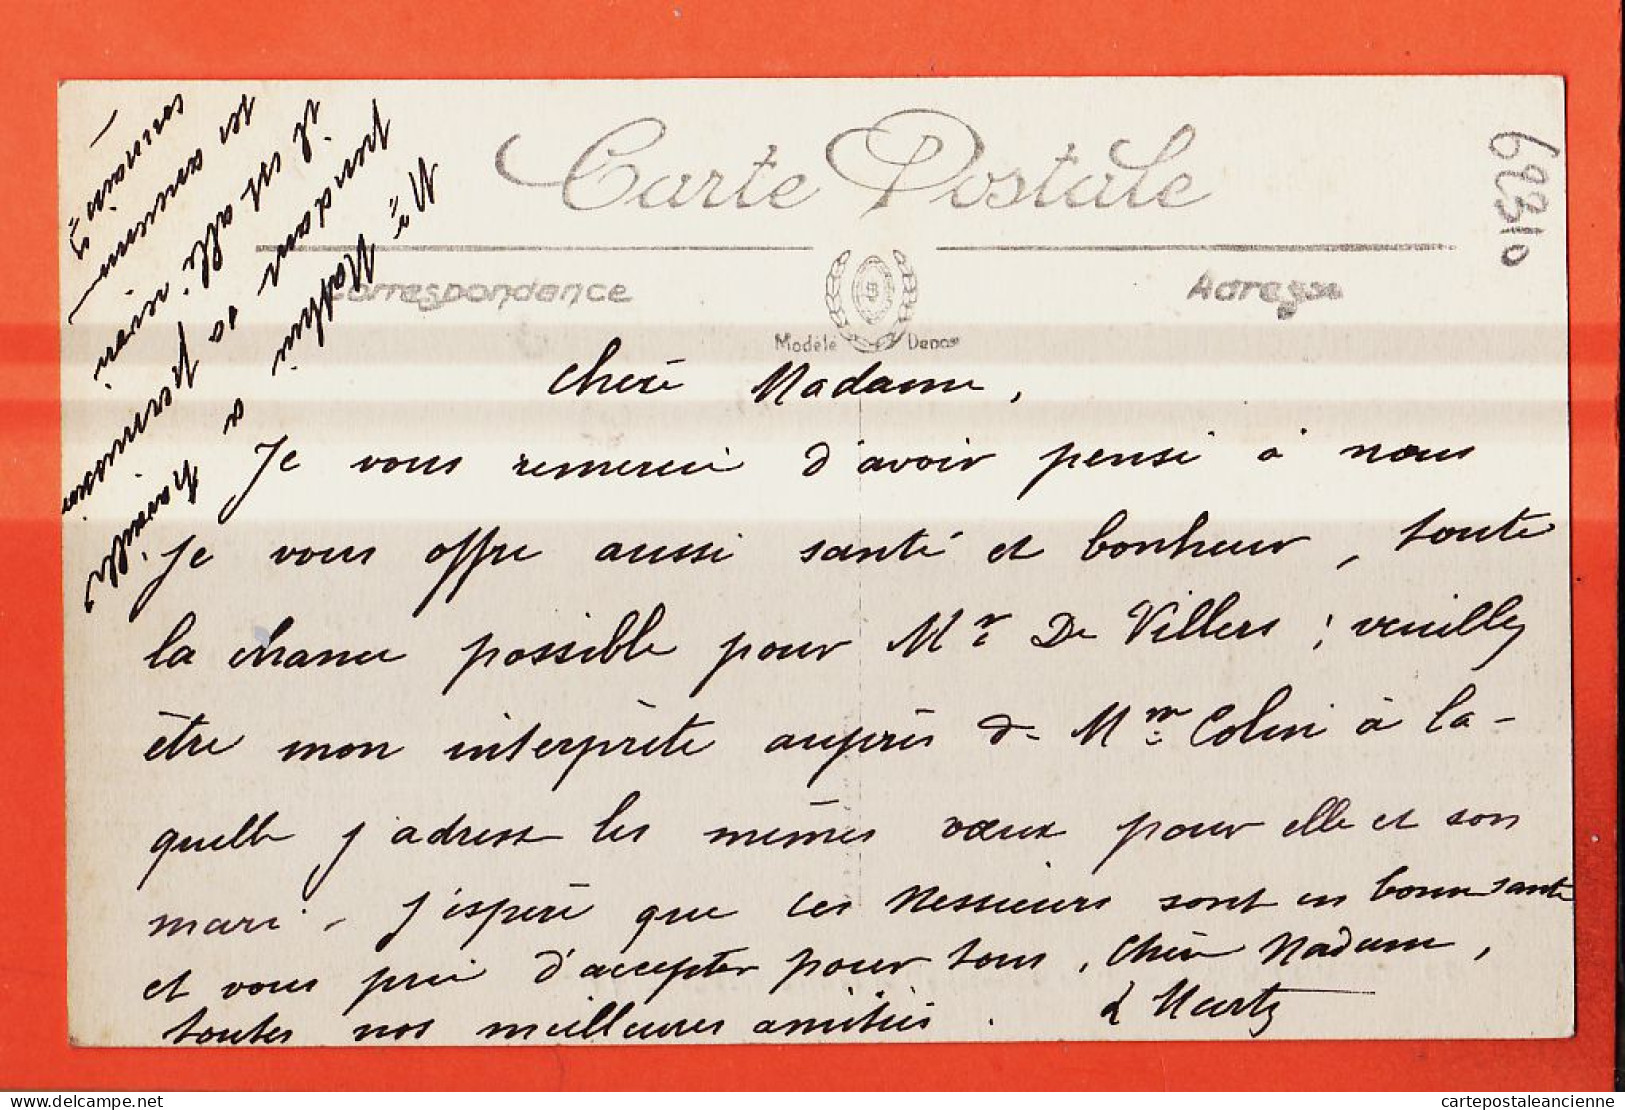 Carte Postale
69310
Correspondance
Adresse
Modèle
Chère Madame,
Je vous remercie d'avoir pensé à nous
je vous offre aussi santé et bonheur, toute
la chance possible pour Mr De Villers ; veuillez
être mon interprète auprès de Mme Colin à la-
quelle j'adresse les mêmes vœux pour elle et son
mari. J'espère que ces Messieurs sont en bonne santé
et vous prie d'accepter pour tous, Chère Madame,
toutes nos meilleures amitiés.
Mr Mathieu a travaillé
pendant sa permission
il est allé voir
delcampe.net
cartepostaleancienne